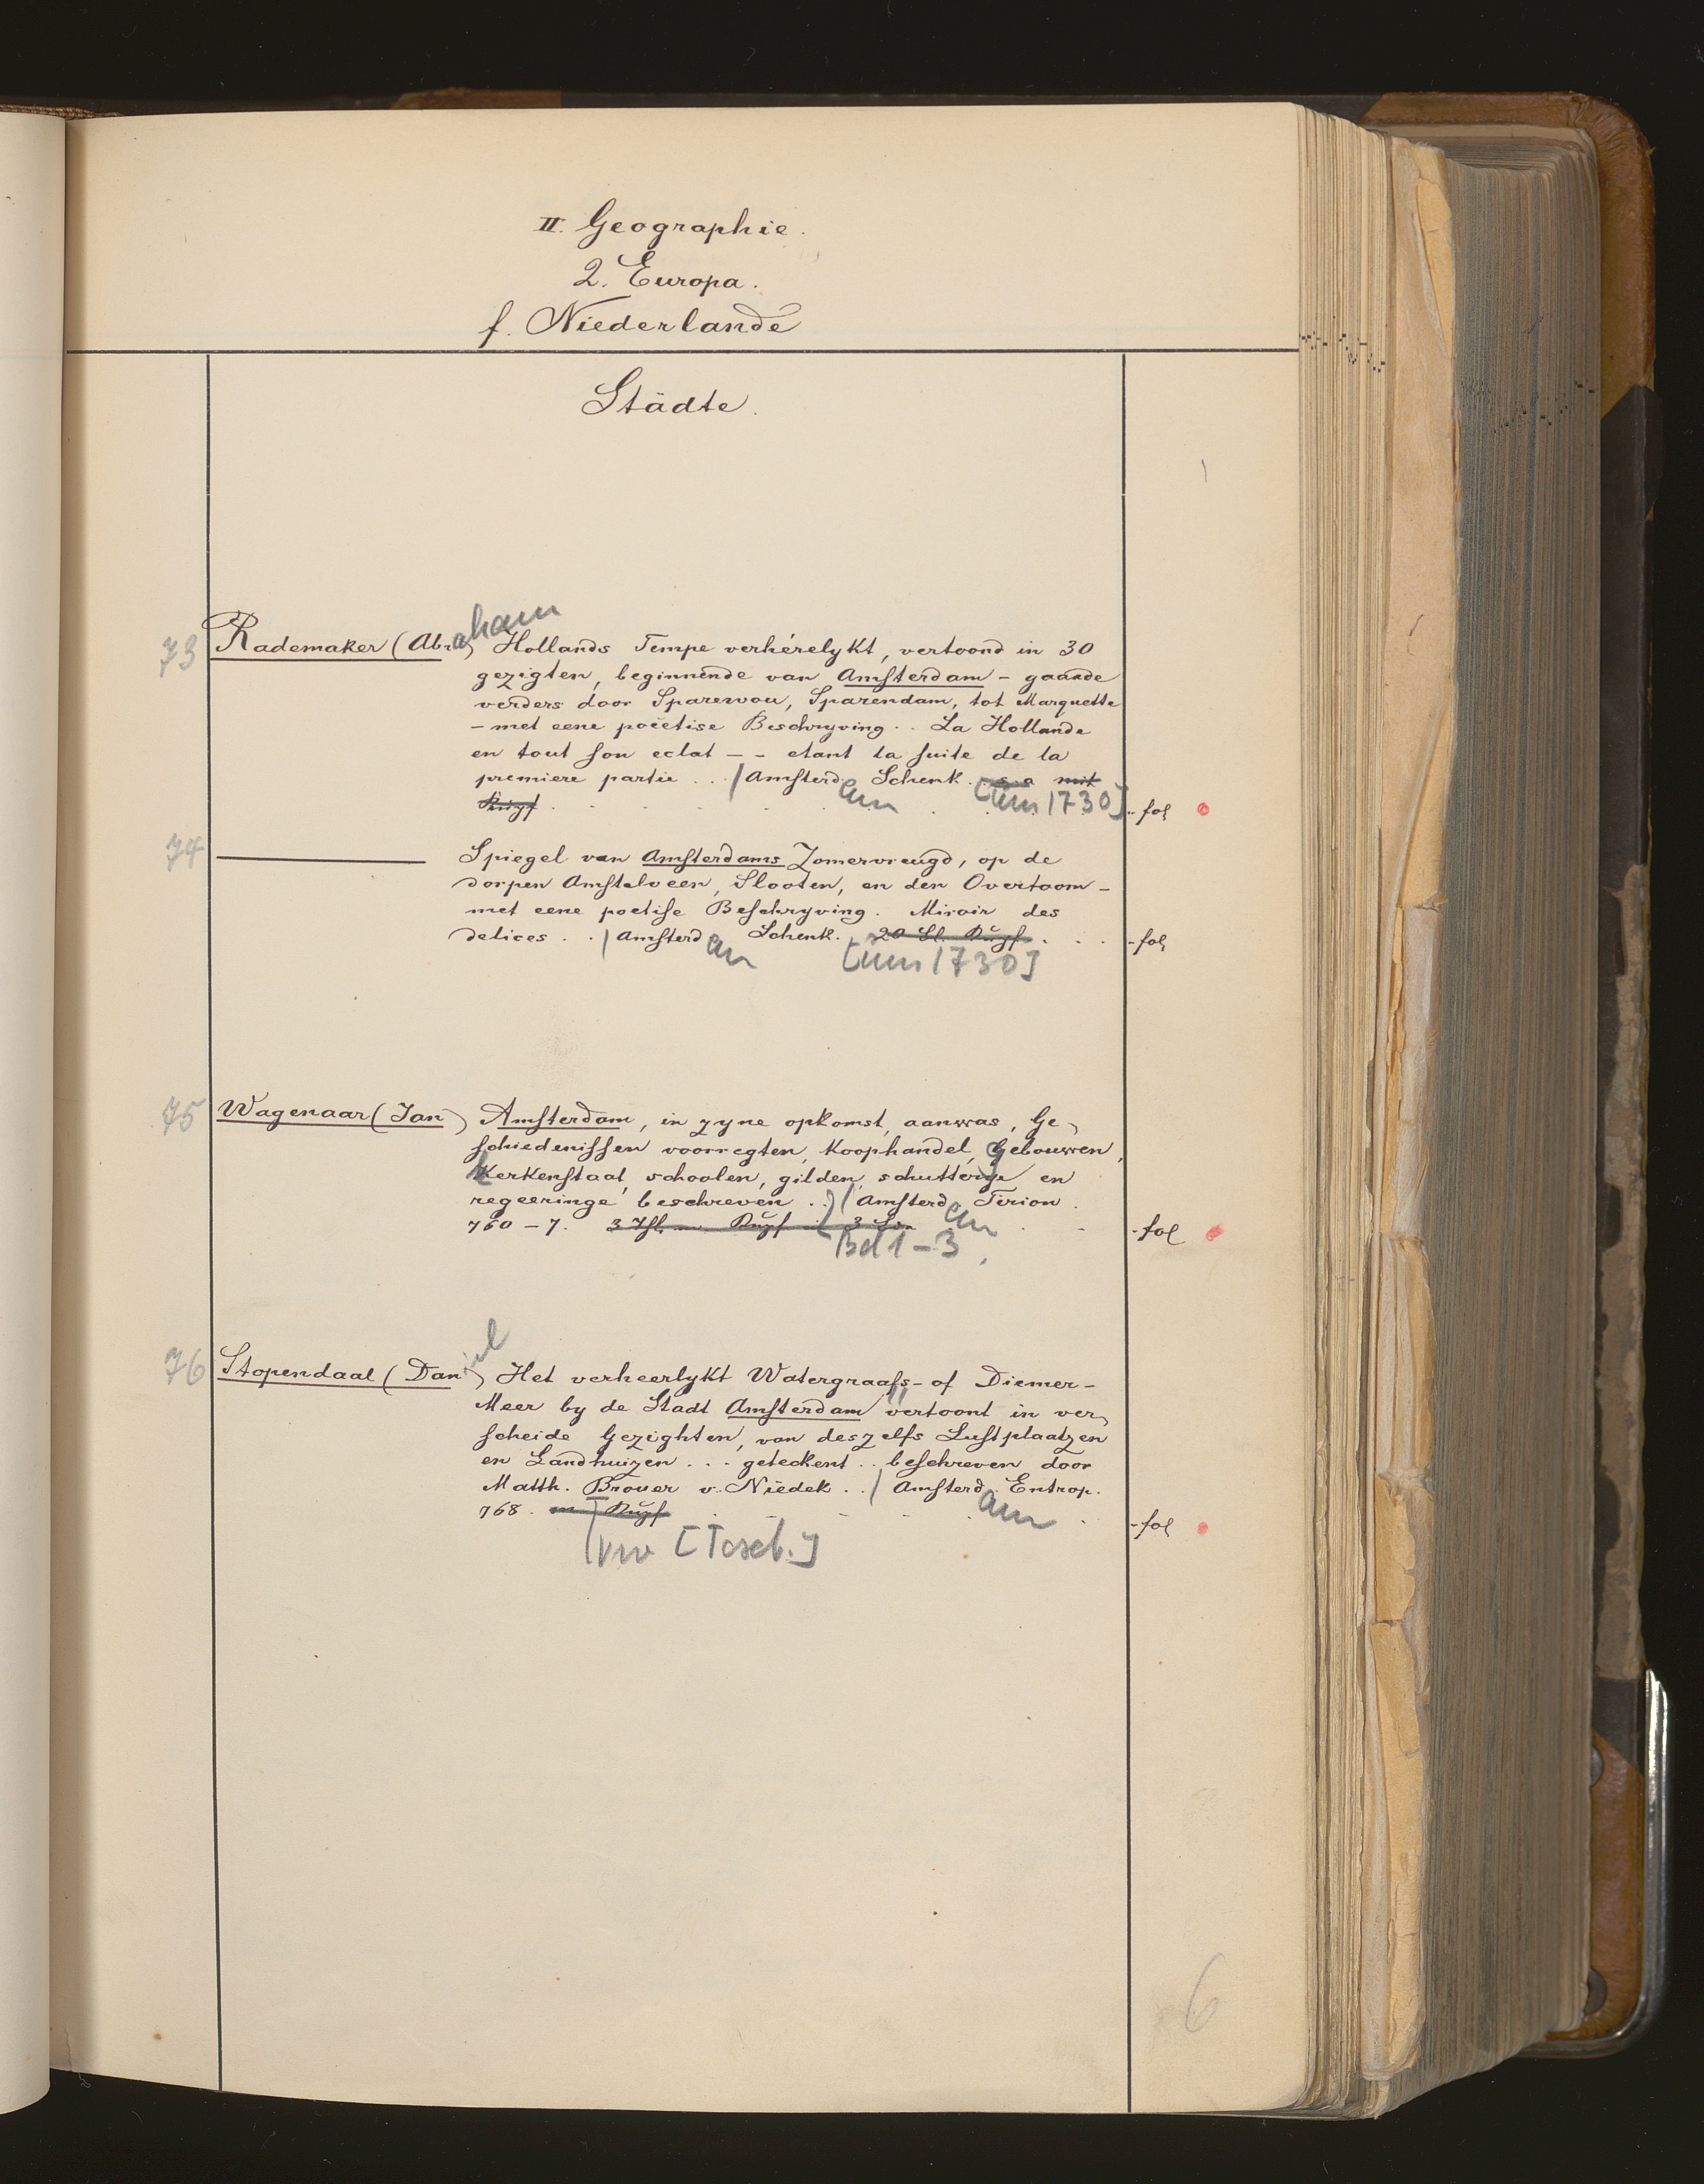 II. Geographie.
2. Europa.
f. Niederlande
Städte.
73 Rademaker (Abraham) Hollands Tempe verhérelykt, vertoond in 30
gezigten, beginnende van Amsterdam - gaande
verders door Sparewou, Sparendam, tot Marquette
- met eene poëetise Beschryving . . La Hollande
en tout son eclat - - etant la suite de la
premiere partie . . . / Amsterd. Schenk. s. a mit
Kupf. [um 1730] - fol
74 ——— Spiegel van Amsterdams Zomervreugd, op de
dorpen Amstelveen, Slooten, en den Overtoom -
met eene poetise Beschryving. Miroir des
delices . . / Amsterd Schenk. 20 Bl. Kupf. . . . - fol
[um 1730]
75 Wagenaar (Jan) Amsterdam, in zyne opkomst, aanwas, Ge-
schiedenissen voorregten, Koophandel, Gebouwen,
Kerkenstaat, schoolen, gilden, schutterye en
regeeringe beschreven . . / Amsterd Tirion.
760-7. 3 Thl. m. Kupf in 3 - fol
Bd 1-3,
76 Stopendaal (Daniel) Het verheerlykt Watergraafs- of Diemer-
Meer by de Stadt Amsterdam vertoont in ver-
scheide Gezighten, van deszelfs Lustplaatzen
en Landhuizen . . . geteckent . . beschreven door
Matth. Brouer v. Niedek . . / Amsterd. Entrop.
768. m Kupf - fol
6